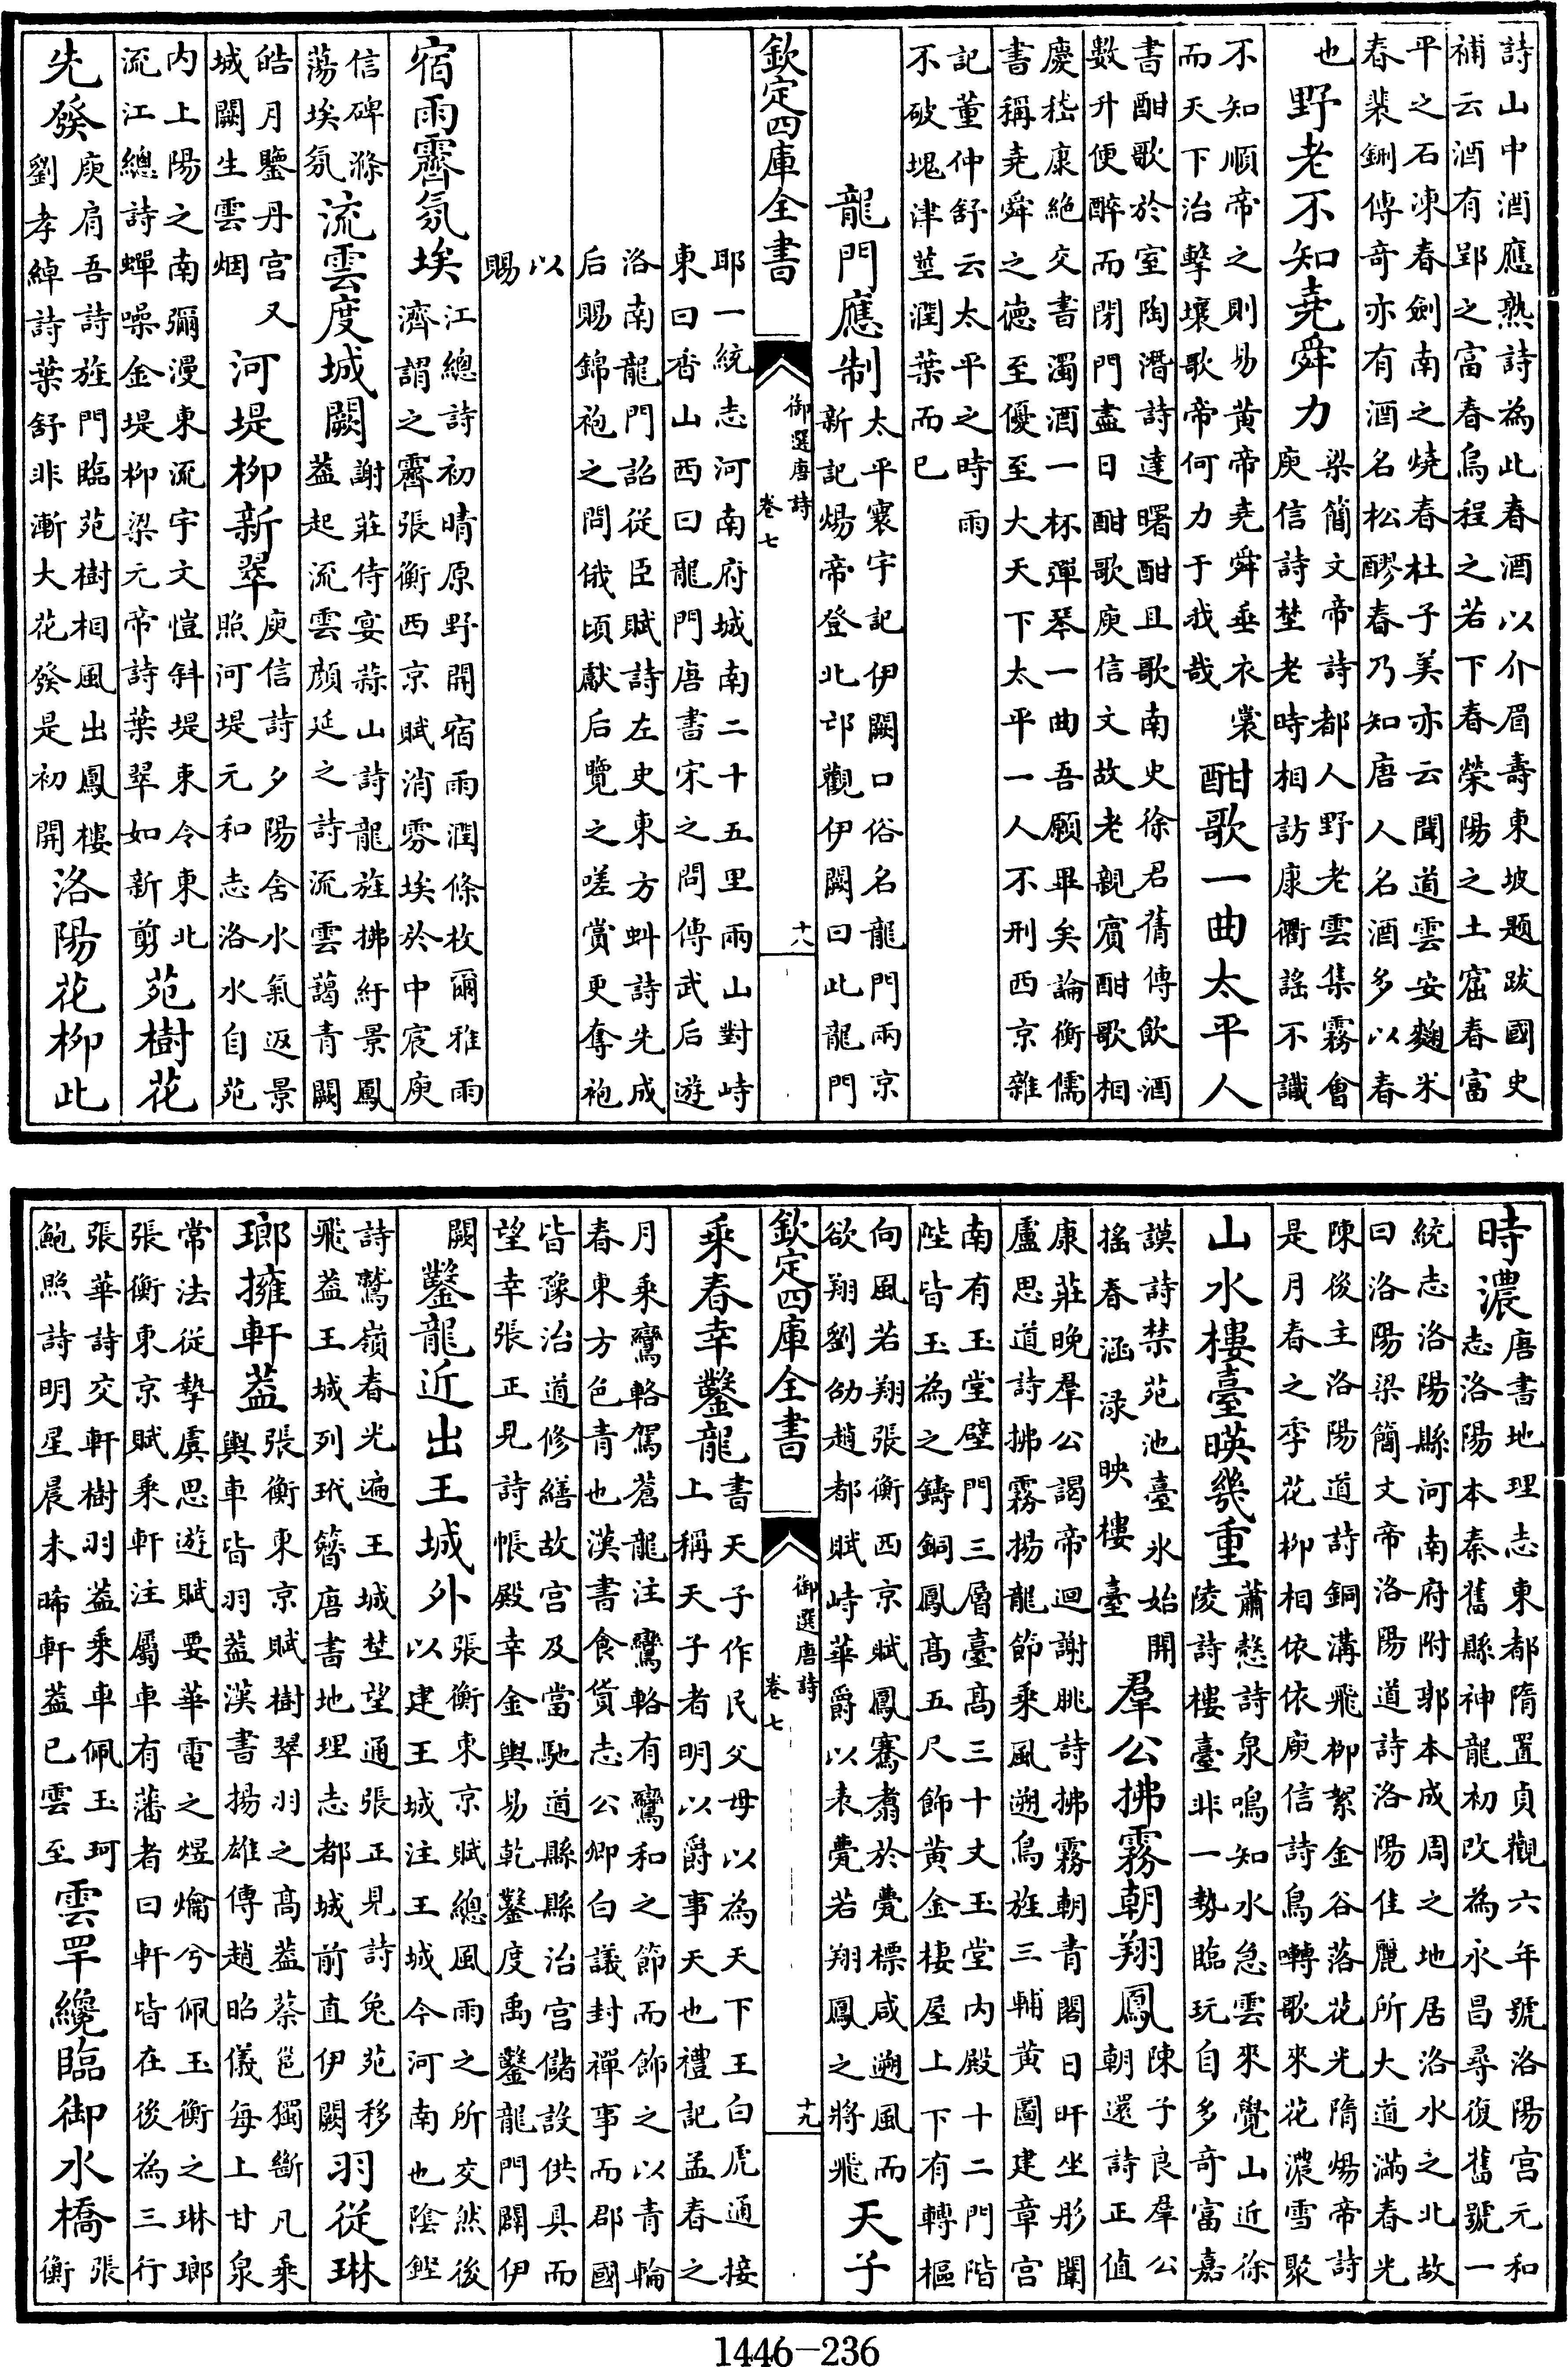 詩山中酒應熟詩為此春酒以介眉壽東坡題跋國史
補云酒有郢之富春烏程之若下春榮陽之土窟春富
平之石凍春劍南之燒春杜子美亦云聞道雲安麴米
春裴鉶傳奇亦有酒名松醪春乃知唐人名酒多以春
也
野老不知堯舜力
梁簡文帝詩都人野老雲集霧會
庾信詩埜老時相訪康衢謠不識
不知順帝之則易黃帝堯舜垂衣裳
而天下治擊壤歌帝何力于我哉
酣歌一曲太平人
書酣歌於室陶潛詩達曙酣且歌南史徐君蒨傳飲酒
數升便醉而閉門盡日酣歌庾信文故老親賓酣歌相
慶嵇康絕交書濁酒一杯彈琴一曲吾願畢矣論衡儒
書稱堯舜之德至優至大天下太平一人不刑西京雜
記董仲舒云太平之時雨
不破塊津莖潤葉而已
龍門應制
太平寰宇記伊闕口俗名龍門兩京
新記煬帝登北邙觀伊闕曰此龍門
欽定四庫全書
御選唐詩
卷七
十八
耶一統志河南府城南二十五里兩山對峙
東曰香山西曰龍門唐書宋之問傳武后遊
洛南龍門詔從臣賦詩左史東方虬詩先成
后賜錦袍之問俄頃獻后覽之嗟賞更奪袍
以
賜
宿雨霽氛埃
江總詩初晴原野開宿雨潤條枚爾雅雨
濟謂之霽張衡西京賦消雰埃於中宸庾
信碑滌
蕩埃氛
流雲度城闕
謝莊侍宴蒜山詩龍旌拂紆景鳳
葢起流雲顔延之詩流雲藹青闕
皓月鑒丹宮又
城闕生雲烟
河堤柳新翠
庾信詩夕陽含水氣返景
照河堤元和志洛水自苑
内上陽之南彌漫東流宇文愷斜堤束令東北
流江總詩蟬噪金堤柳梁元帝詩葉翠如新剪
苑樹花
先發
庾肩吾詩旌門臨苑樹相風出鳳樓
劉孝綽詩葉舒非漸大花發是初開
洛陽花柳此
時濃
唐書地理志東都隋置貞觀六年號洛陽宮元和
志洛陽本秦舊縣神龍初改為永昌尋復舊號一
統志洛陽縣河南府附郭本成周之地居洛水之北故
曰洛陽梁簡文帝洛陽道詩洛陽佳麗所大道滿春光
陳後主洛陽道詩銅溝飛柳絮金谷落花光隋煬帝詩
是月春之季花柳相依依庾信詩鳥囀歌來花濃雪聚
山水樓臺暎幾重
蕭慤詩泉鳴知水急雲來覺山近徐
陵詩樓臺非一勢臨玩自多奇富嘉
謨詩禁苑池臺氷始開
搖春涵淥映樓臺
羣公拂霧朝翔鳳
陳子良羣公
朝還詩正值
康莊晚羣公謁帝迴謝朓詩拂霧朝青閣日旰坐彤闈
盧思道詩拂霧揚龍節乘風遡鳥旌三輔黄圖建章宮
南有玉堂壁門三層臺高三十丈玉堂内殿十二門階
陛皆玉為之鑄銅鳳高五尺飾黄金棲屋上下有轉樞
向風若翔張衡西京賦鳳騫翥於甍標咸遡風而
欲翔劉劭趙都賦峙華爵以表甍若翔鳳之將飛
天子
欽定四庫全書
御選唐詩
卷七
十九
乘春幸鑿龍
書天子作民父母以為天下王白虎通接
上稱天子者明以爵事天也禮記孟春之
月乘鸞輅駕蒼龍注鸞輅有鸞和之節而飾之以青輪
春東方色青也漢書食貨志公卿白議封禪事而郡國
皆豫治道修繕故宮及當馳道縣縣治宮儲設供具而
望幸張正見詩帳殿幸金輿易乾鑿度禹鑿龍門闢伊
闕
鑿龍近出王城外
張衡東京賦總風雨之所交然後
以建王城注王城今河南也陰鏗
詩鷲嶺春光遍王城埜望通張正見詩兔苑移
飛葢王城列玳簪唐書地理志都城前直伊闕
羽從琳
瑯擁軒葢
張衡東京賦樹翠羽之高葢蔡邕獨斷凡乘
輿車皆羽葢漢書揚雄傳趙昭儀每上甘泉
常法從摯虞思遊賦要華電之煜爚兮佩玉衡之琳瑯
張衡東京賦乘軒注屬車有藩者曰軒皆在後為三行
張華詩交軒樹羽葢乘車佩玉珂
鮑照詩明星晨未晞軒葢已雲至
雲罕纔臨御水橋
張
衡
1446-236